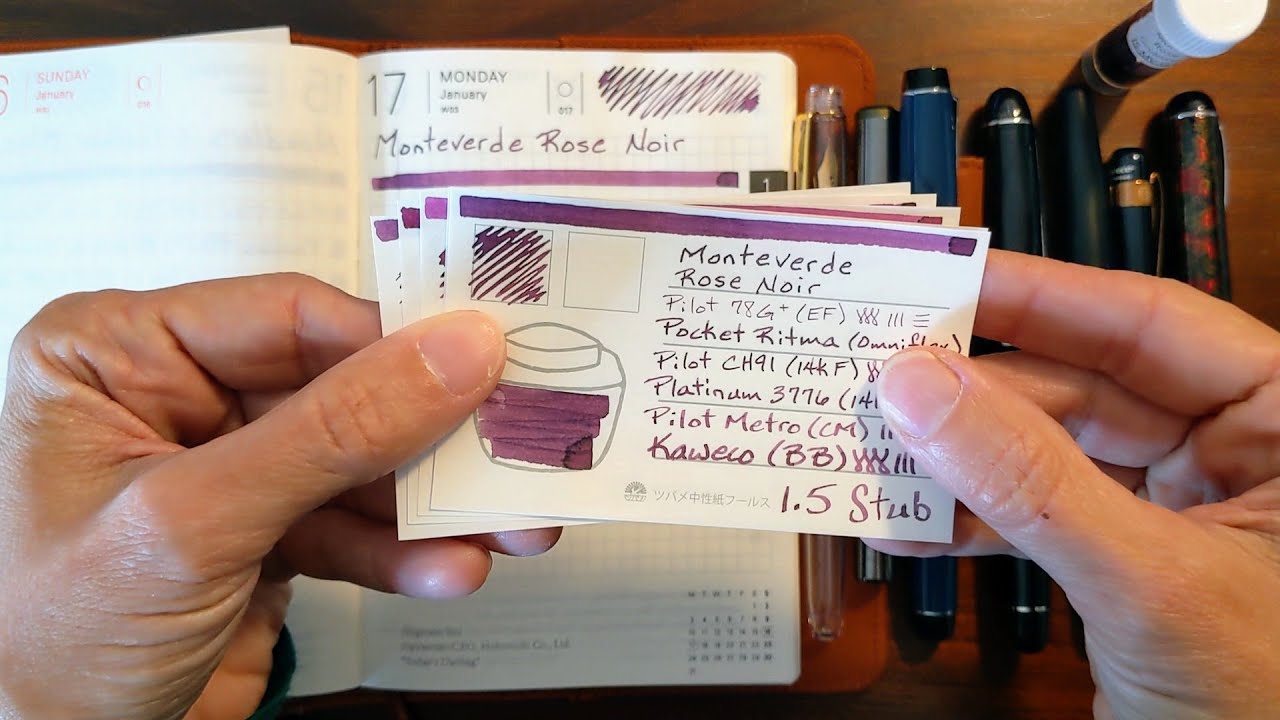 6
SUNDAY
January
17
MONDAY
January
W03
017
Monteverde Rose Noir
1
Monteverde
Rose Noir
Pilot 78G+ (EF)
Pocket Ritma (Omniflex)
Pilot CH91 (14k F)
Platinum 3776 (14k
Pilot Metro (CM)
Kaweco (BB)
ツバメ中性紙フールス
1.5 Stub